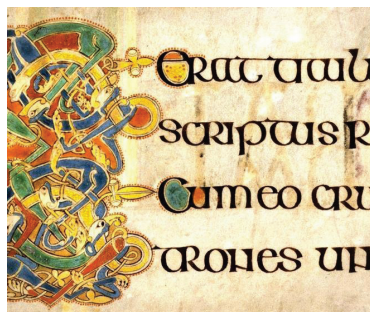 erat titul
scriptus r
cum eo cru
trones un